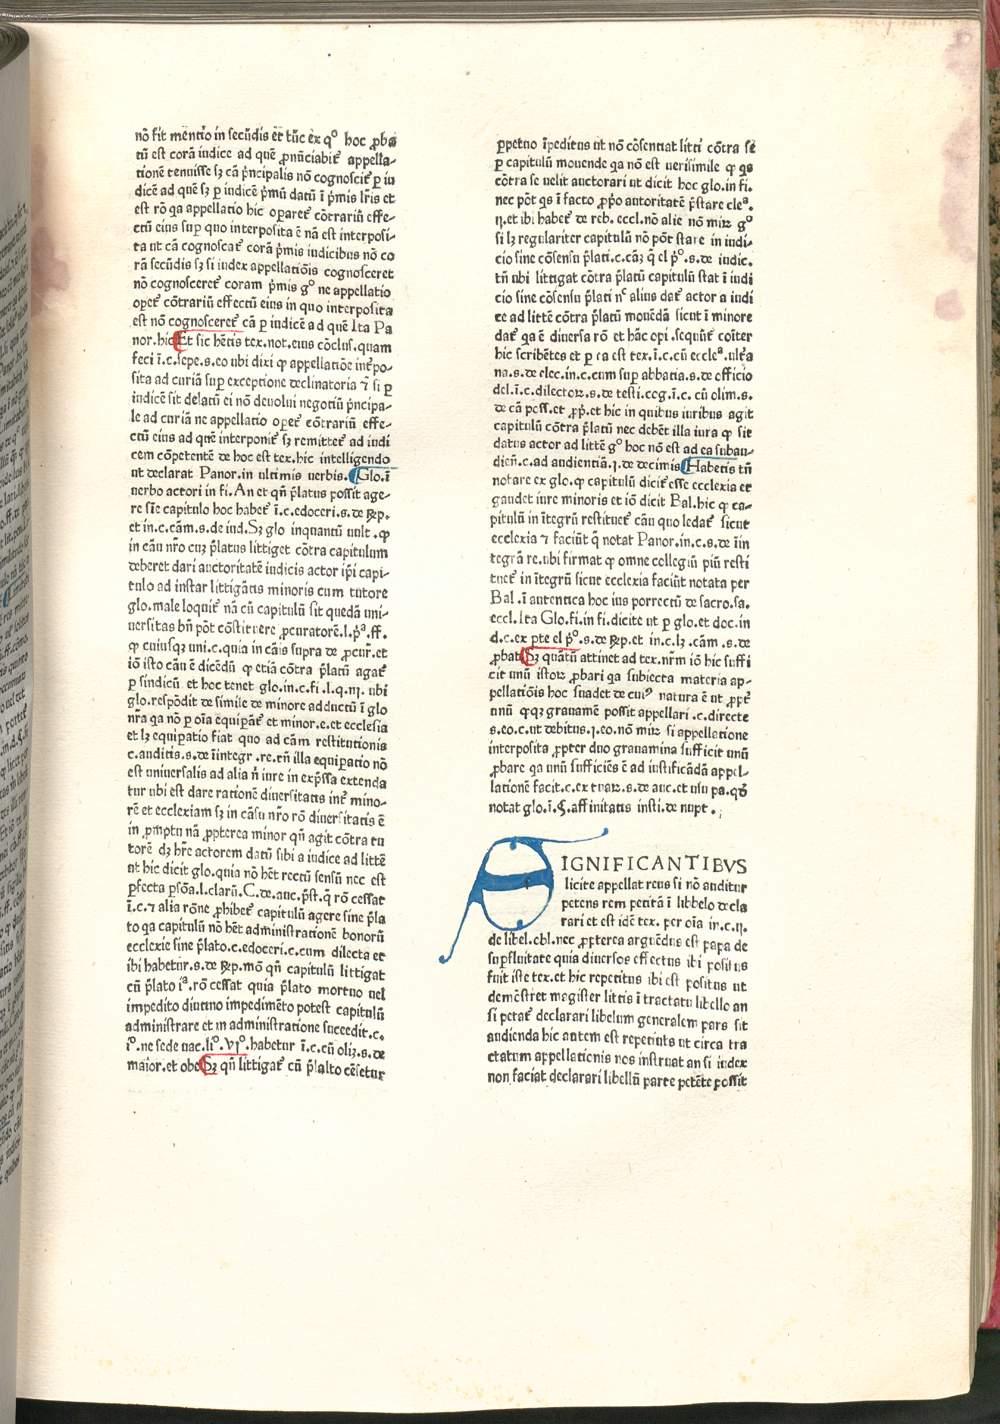 nō fit mentio in secūdis ēr tūc ex qº hoc ꝓba
tū est corā iudice ad quē ꝓnūciabiť appella-
tionē tenuisse sꝫ cā p̄ncipalis nō cognosciť ꝑ iu
dicē ad quē sꝫ ꝑ iudicē p̄mū datū ī p̄mis lr̄is et
est rō qa appellatio hic oꝑareť cōtrariū effe-
ctū eius suꝑ quo interposita ē nā est interposi-
ta ut cā cognoscať corā p̄mis iudicibus nō co
rā secūdis sꝫ si iudex appellatiōis cognosceret
nō cognosceret coram p̄mis gº ne appellatio
oꝑeť cōtrariū effectū eius in quo interposita
est nō cognoscereť cā ꝑ iudicē ad quē Ita Pa
nor.hic Et sic hētis tex.not.eius cōclus.quam
feci ī.c.sepe.s.eo ubi dixi ꝙ appellatiōe inťpo-
sita ad curiā suꝑ exceptione declinatoria ⁊ si ꝑ
iudicē sit delatū ei nō deuolui negotiū p̄ncipa-
le ad curiā ne appellatio oꝑeť cōtrariū effe-
ctū eius ad quē interponiť sꝫ remitteť ad iudi
cem cōpetentē de hoc est tex.hic intelligendo
ut declarat Panor.in ultimis uerbis. Glo.ī
uerbo actori in fi. An et qn̄ p̄latus possit age-
re sīe capitulo hoc habeť ī.c.edoceri.s.de Rep.
et in.c.cām.s.de iud. Sꝫ glo inquantū uult .ꝙ
in cāu nr̄o cuꝫ p̄latus littiget cōtra capitulum
deberet dari auctoritatē iudicis actor ip̄i capi-
tulo ad instar littigātis minoris cum tutore
glo.male loquiť nā cū capitulū sit quedā uni-
uersitas bn̄ pōt cōstituere ꝓcuratorē.l.p̄ª.ff.
ꝙ cuiusqꝫ uni.c.quia in cāis supra de ꝓcur̄.et
iō isto cāu ē dicēdū ꝙ etiā cōtra p̄latū agať
ꝑ sindicū et hoc tenet glo.in.c.fi.l.q.ıȷ. ubi
glo.respōdit de simile de minore adductū ī glo
nr̄a qa nō ꝑ oīa equipāť et minor.e.et ecclesia
et lꝫ equipatio fiat quo ad cām restitutionis
c.auditis.s.de īintegr .re.tn̄ illa equipatio nō
est uniuersalis ad alia n̄ iure in exp̄ssa extenda
tur ubi est dare rationē diuersitatis inť mino-
rē et ecclexiam sꝫ in cāsu nro rō diuersitatis ē
in ꝓmptu nā ꝓpterea minor qn̄ agit cōtra tu
torē dꝫ hr̄e actorem datū sibi a iudice ad littē
ut hic dicit glo.quia nō hēt rectū sensū nec est
ꝑfecta ꝑsōa.l.clarū.C.de.auc.p̄st.q rō cessat
ī.c.⁊ alia rōne ꝓhibeť capitulū agere sine p̄la
to qa capitulū nō hēt administrationē bonorū
ecclexie sine p̄lato.c.edoceri.c.cum dilecta et
ibi habetur.s.de Rep.mō qn̄ capitulū littigat
cū p̄lato iª.rō cessat quia p̄lato mortuo uel
impedito diutino impedimēto potest capitulū
administrare et in administratione succedit.c.
iº.ne sede uac.liº.vıº.habetur ī.c.cū oliꝫ.s.de
maior.et obe Sꝫ qn̄ littigať cū p̄lalto cēsetur
ꝑpetuo īpeditus ut nō cōsentiat litti cōtra sē
ꝑ capitulū mouende qa nō est uerisimile ꝙ qs
cōtra se uelit auctorari ut dicit hoc glo.in fi.
nec pōt qs ī facto ꝓp̄o autoritatē p̄stare cleª.
ıȷ.et ibi habeť de reb. eccl.nō alie nō miꝝ gº
si lꝫ regulariter capitulū nō pōt stare in iudi-
cio sine cōsensu p̄lati.c.cāꝫ q̄ el p̄º.s.de iudic.
tn̄ ubi littigat cōtra p̄latū capitulū stat ī iudi
cio sine cōsensu p̄lati nᶜ alius dať actor a iudi
ce ad littē cōtra p̄latū mouēdā sicut ī minore
dať qa ē diuersa rō et hāc opi .sequūť cōiter
hic scribētes et ꝑ ea est tex.ī.c.cū eccleª.ultēa
na.s.de elec.in.c.cum suꝑ abbatia.s.de officio
del.ī.c.dilectoꝝ.s.de testi.cog.ī.c. cū olim.s.
de cā poss.et ꝓp̄.et hic in quibus iuribus agit
capitulū cōtra p̄latū nec debēt illa iura ꝙ sit
datus actor ad littē gº hoc nō est ad ea subau-
dien̄.c.ad audientiā.ȷ.de decimis Habetis tn̄
notare ex glo.ꝙ capitulū diciť esse ecclexia et
gaudet iure minoris et iō dicit Bal.hic ꝙ ca-
pitulū in ītegrū restitueť cāu quo ledať sicut
ecclexia ⁊ faciūt q̄ notat Panor.in.c.s.de īin
tegrā re.ubi firmat ꝙ omne collegiū piū resti
tueť in ītegrū sicut ecclexia faciūt notata per
Bal .ī autentica hoc ius porrectū de sacro.sa.
eccl. Ita Glo.fi.in fi.dicite ut ꝑ glo.et doc.in
d.c.ex pte el p̄º.s.de Rep.et in.c.lꝫ .cām .s.de
ꝓbat Sꝫ quātū attinet ad tex.nr̄m iō hic suffi
cit unū istoꝝ ꝓbari qa subiecta materia ap-
pellatiōis hoc suadet de cuiꝰ natura ē ut ꝓpť
unū qꝫqꝫ grauamē possit appellari .c.directe
s.eo.c.ut debitus.ȷ.eo.nō miꝝ si appellatione
interposita ꝓpter duo grauamina sufficit unū
ꝓbare qa unū sufficiēs ē ad iustificādā appel-
lationē facit.c.ex tuaꝝ.s.de auc.et usu pa.qđ
notat glo.ī.§.affinitatis insti.de nupt.;
SIGNIFICANTIBVS
licite appellat reus si nō auditur
petens rem petitā ī libbelo decla
rari et est idē tex. per oīa in.c.ıȷ.
de libel.obl.nec ꝓpterea arguēdus est papa de
suꝑfluitate quia diuersos effectus ibi positus
fuit iste tex.et hic repetitus ibi est positus ut
demōstret magister littis ī tractatu libello an
si petať declarari libelum generalem pars sit
audienda hic autem est repetitus ut circa tra
ctatum appellationis nos instruat an si iudex
non faciat declarari libellū parte petēte possit